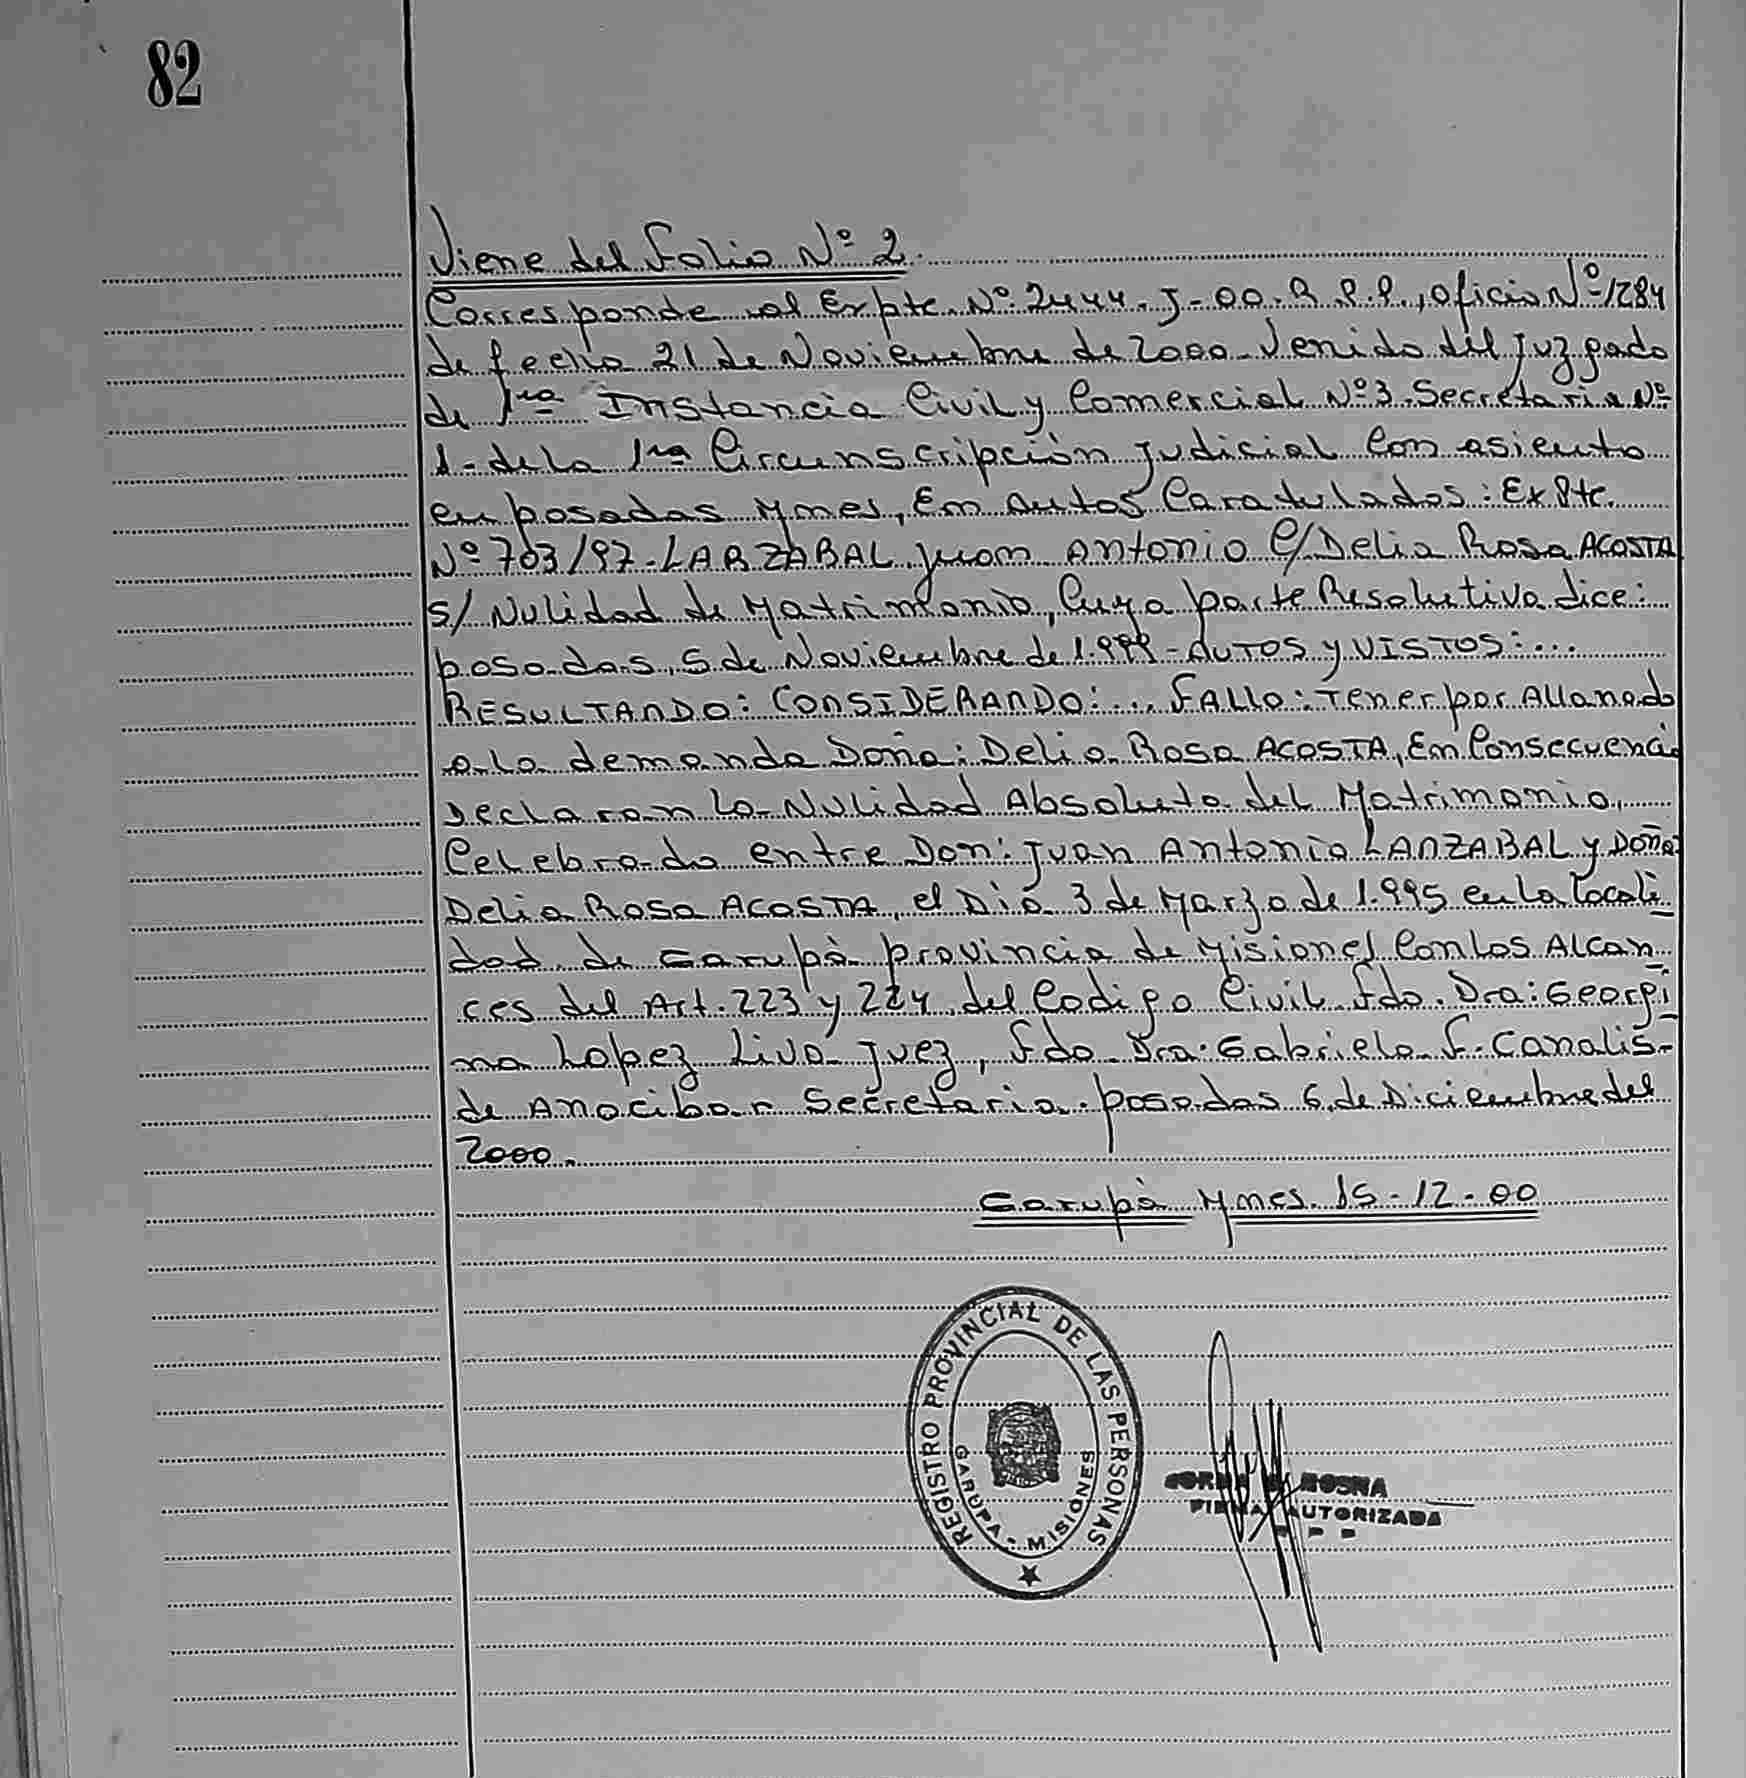 82
Viene del Folio Nº 2.
Corresponde al Expte. Nº 2444. J-00. R.P.P., oficio Nº 1284
de fecha 21 de Noviembre de 2000- Venido del Juzgado
de 1ra Instancia Civil y Comercial Nº 3. Secretaria Nº
1- de la 1ra Circunscripción Judicial Con asiento
en posadas Mnes, Em Autos Caratulados: Expte.
Nº 703/97. LARZABAL Juan Antonio C/ Delia Rosa ACOSTA
s/ Nulidad de Matrimonio, Cuya parte Resolutiva dice:
posadas, 5 de Noviembre de 1.999- AUTOS y VISTOS:...
RESULTANDO: CONSIDERANDO:... FALLO: Tener por Allanado
a la demanda Doña: Delia Rosa ACOSTA, Em Consecuencia
Declaran la Nulidad Absoluta del Matrimonio
Celebrado entre Don: Juan Antonio LANZABAL y Doña:
Delia Rosa ACOSTA, el Dia 3 de Marzo de 1.995 en la Locali
dad de Garupà provincia de Misiones Con los Alcan
ces del Art. 223 y 224 del Codigo Civil Fdo. Dra: Georgi
na Lopez Liva Juez, Fdo. Dra: Gabriela F. Canalis-
de Anocibar Secretaria. posadas 6 de Diciembre del
2000.
Garupà Mnes. 15-12-00
REGISTRO PROVINCIAL DE LAS PERSONAS
GARUPA - MISIONES
AUTORIZADA